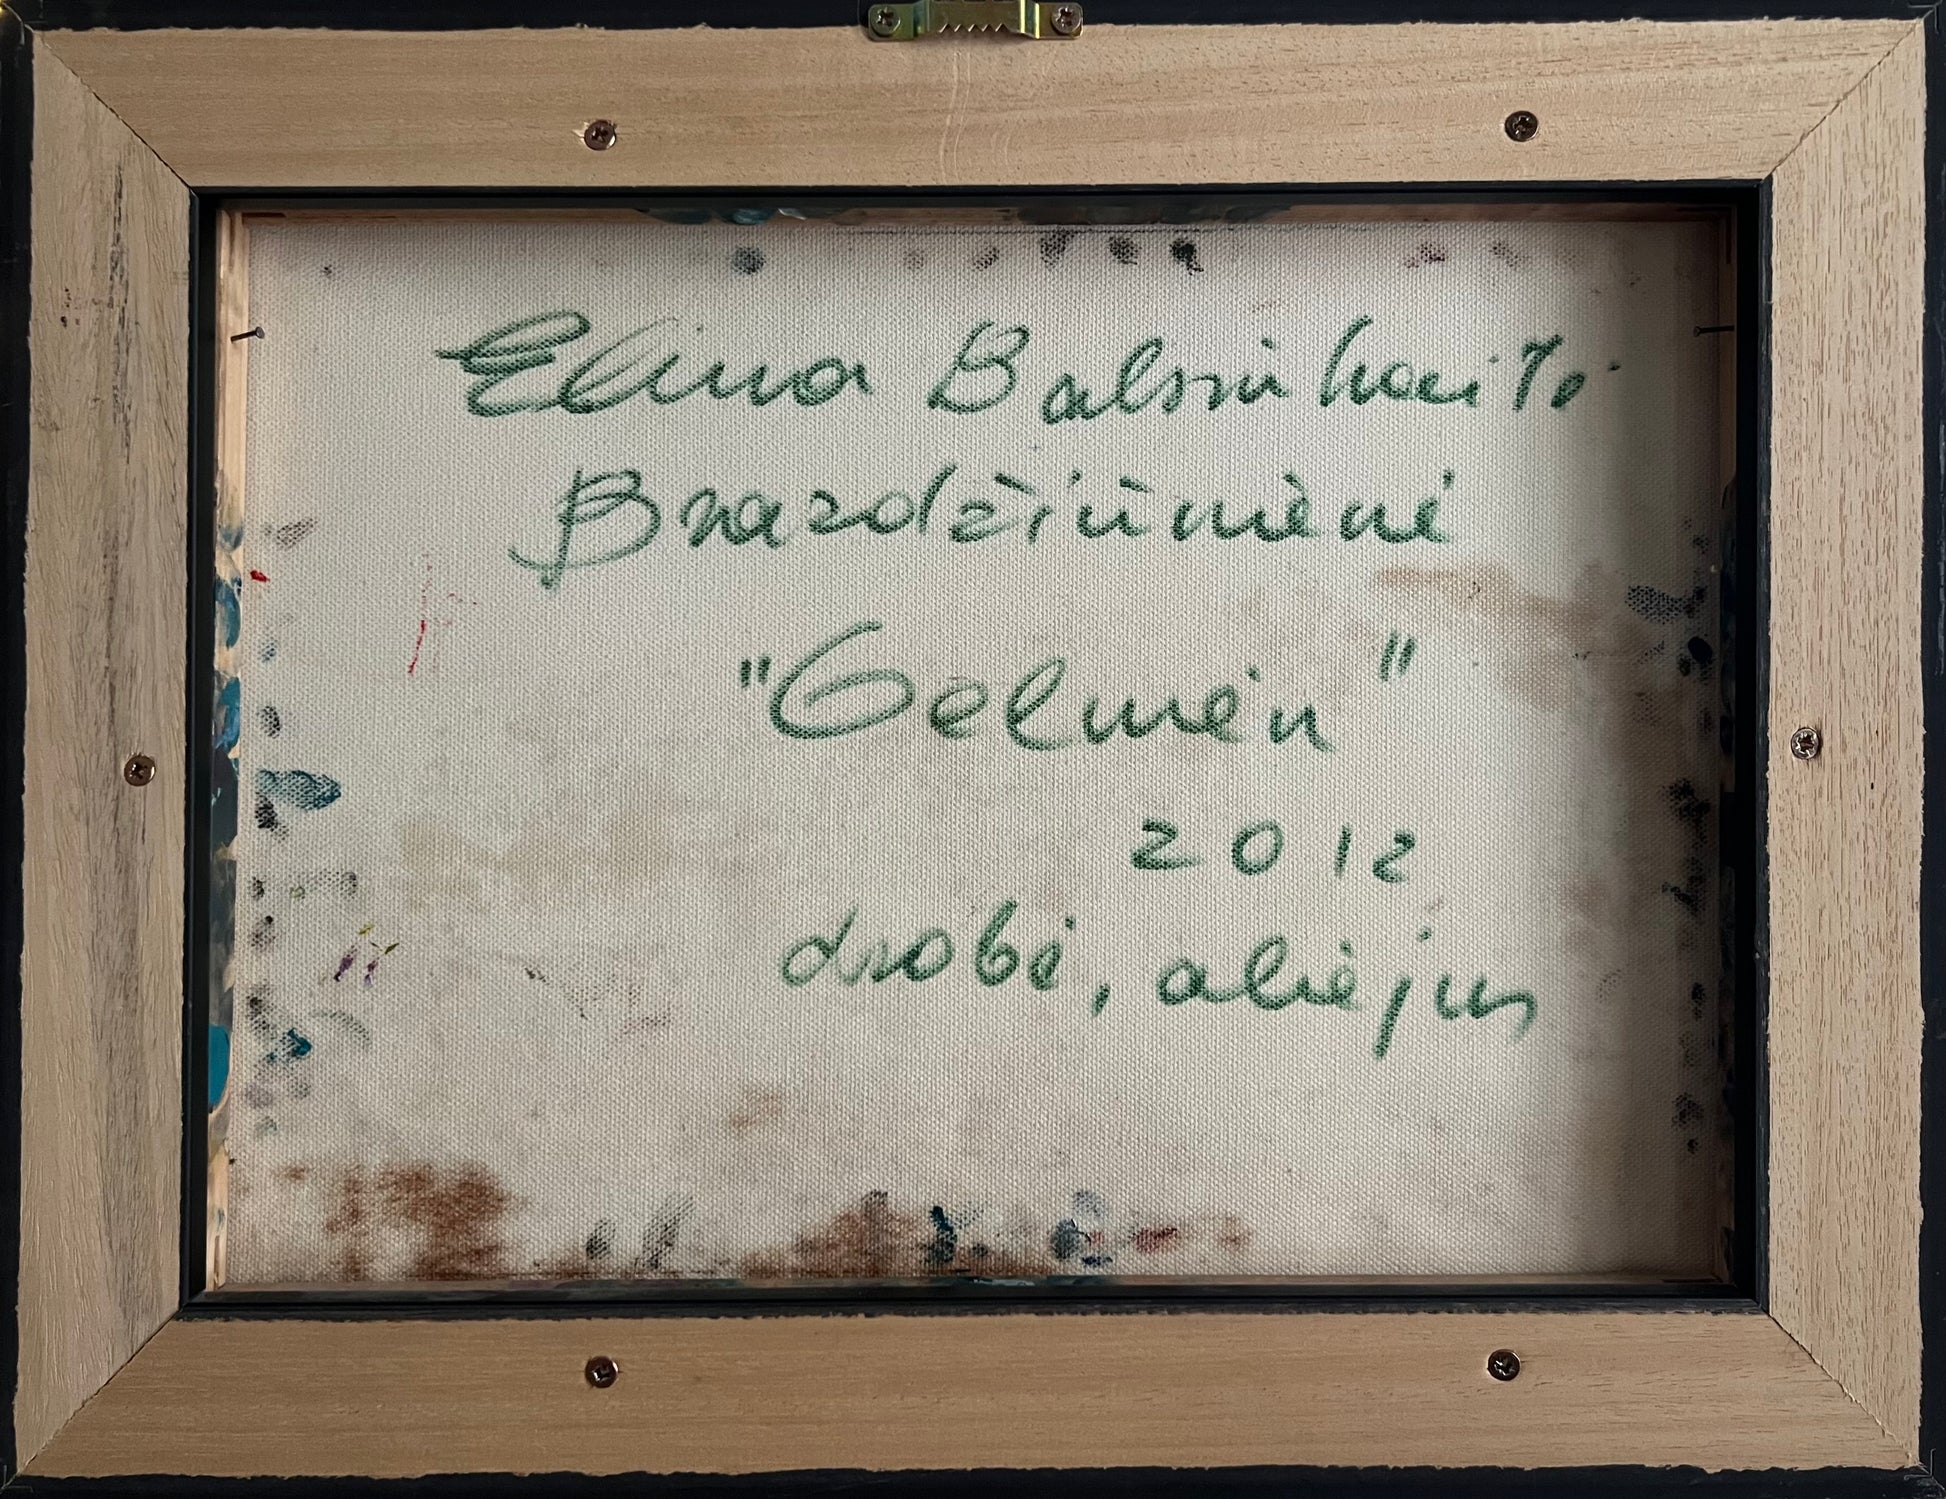 Elina Balsiukaitė
Brazdžiūnienė
"Gelmėn"
2012
drobė, aliejus